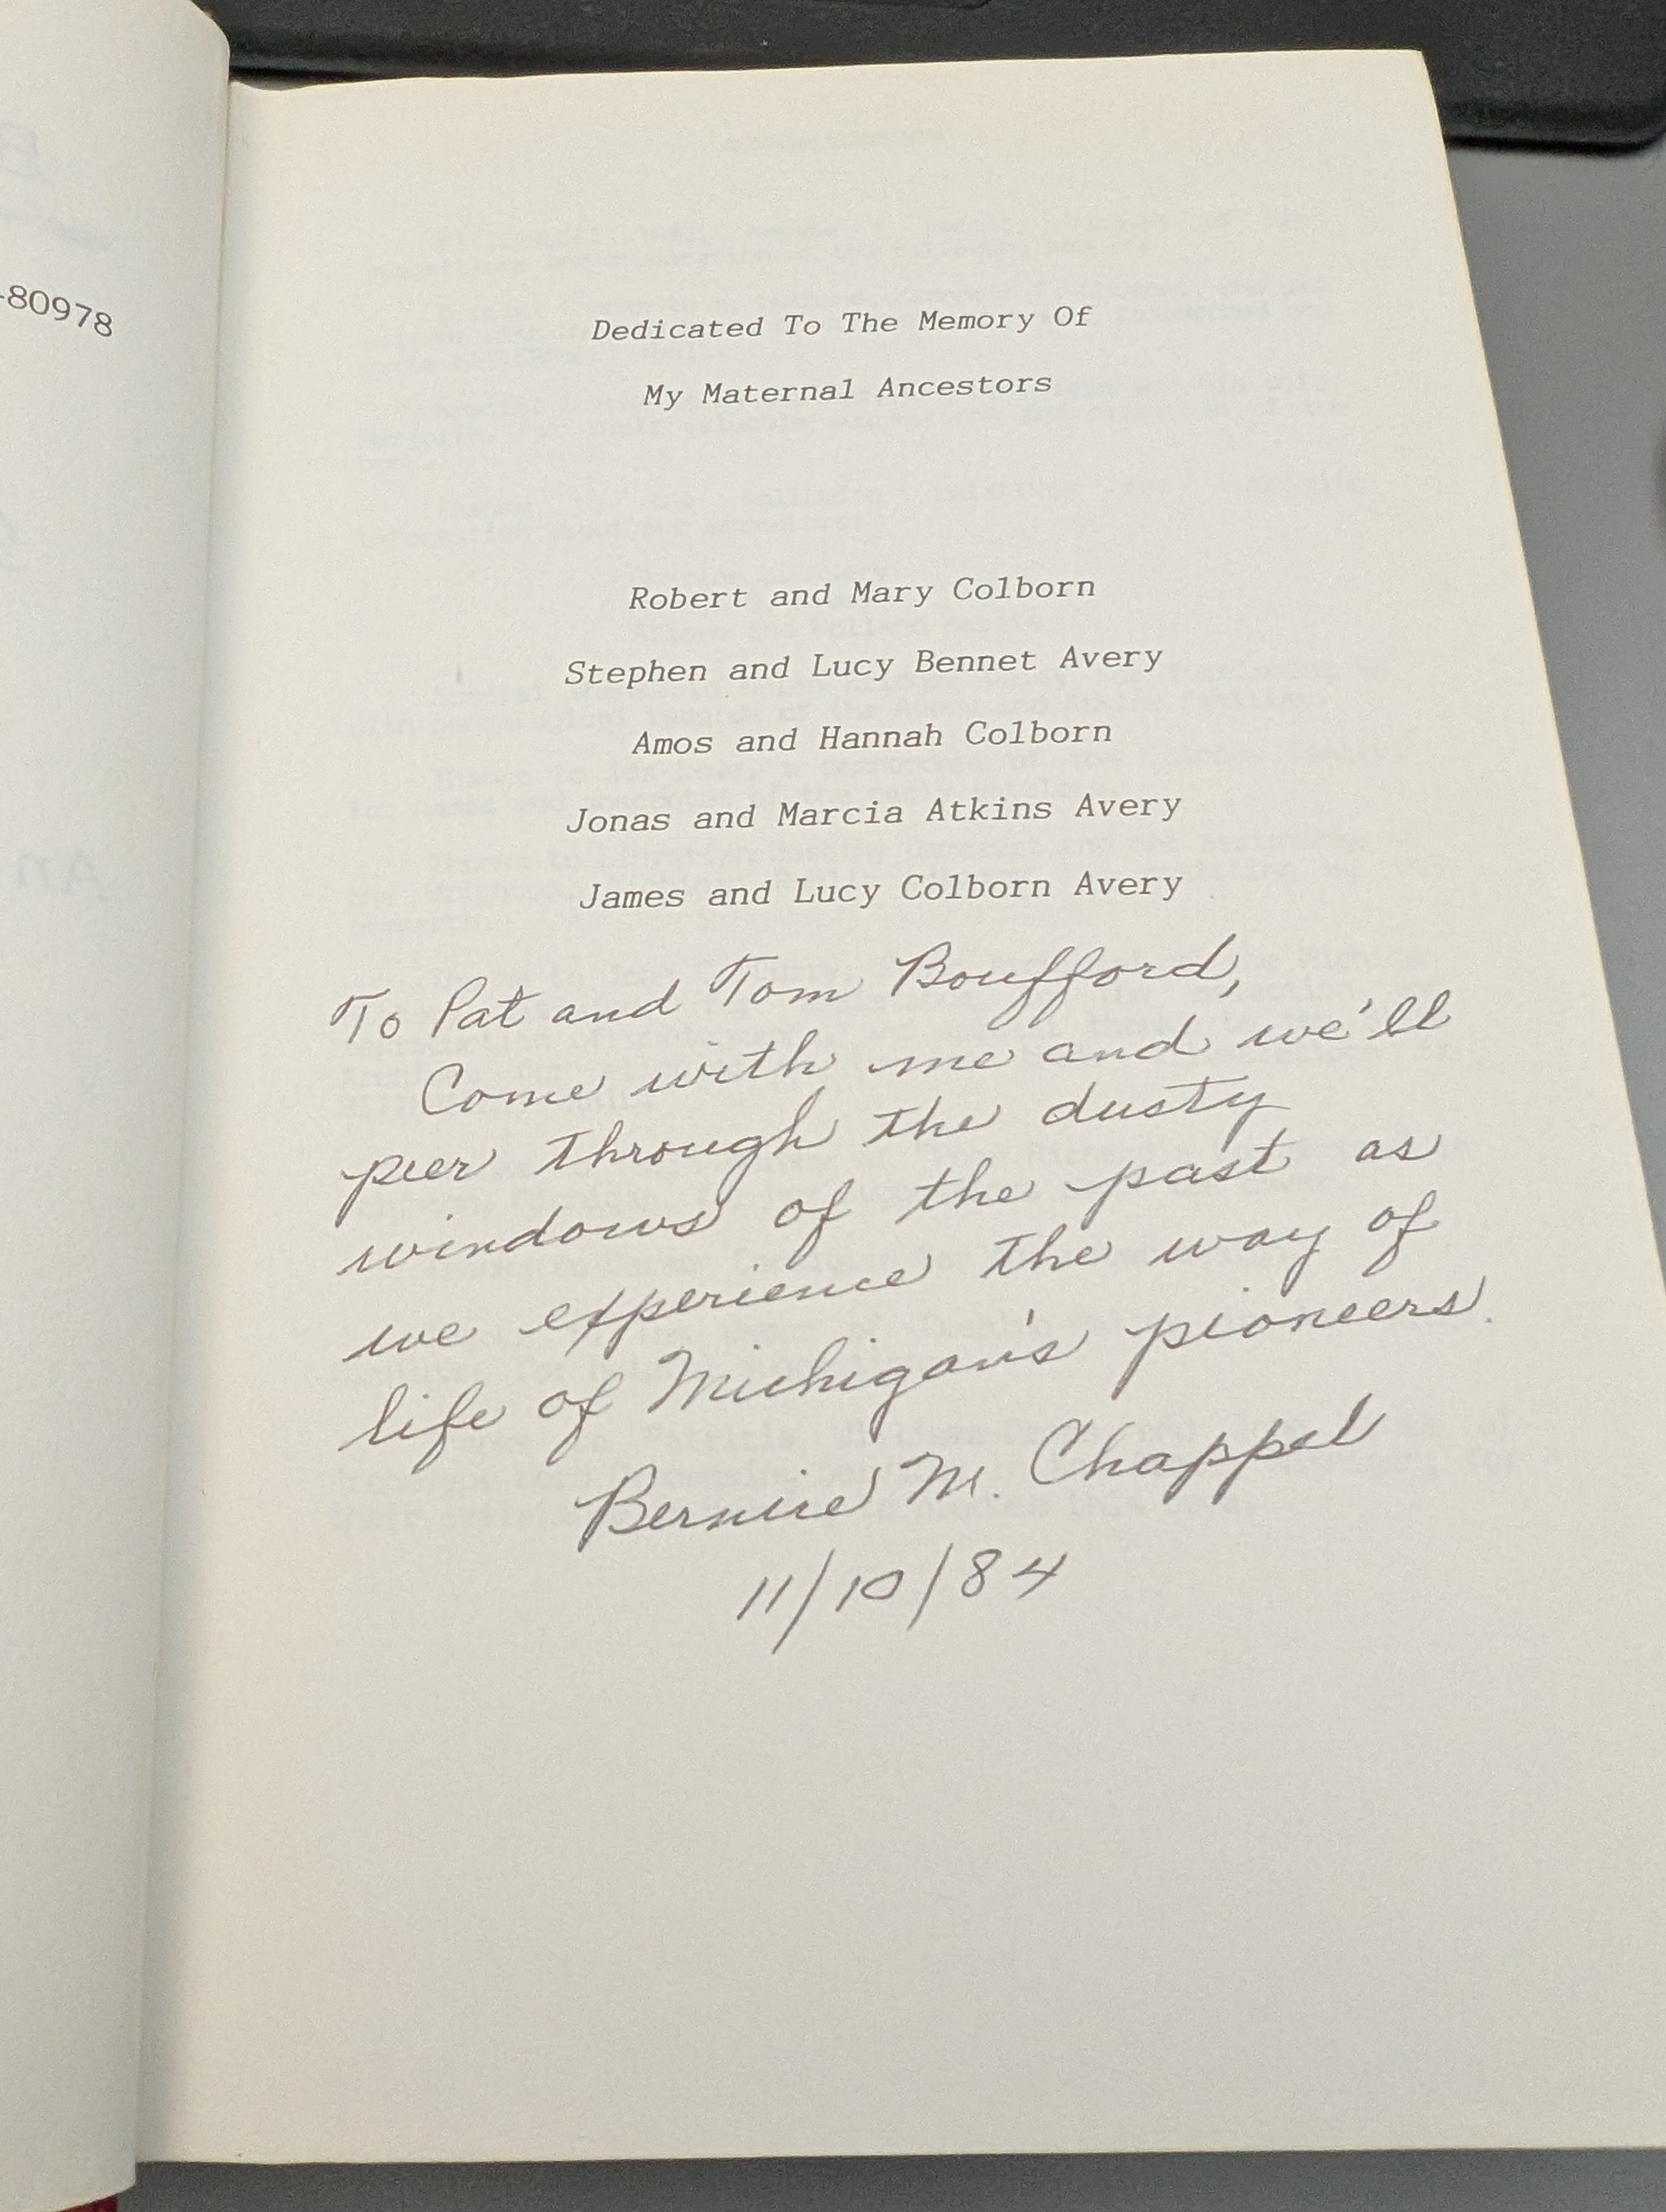 -80978
Dedicated To The Memory Of
My Maternal Ancestors
Robert and Mary Colborn
Stephen and Lucy Bennet Avery
Amos and Hannah Colborn
Jonas and Marcia Atkins Avery
James and Lucy Colborn Avery
To Pat and Tom Boufford,
Come with me and we'll
peer through the dusty
windows of the past as
we experience the way of
life of Michigan's pioneers.
Bernice M. Chappel
11/10/84